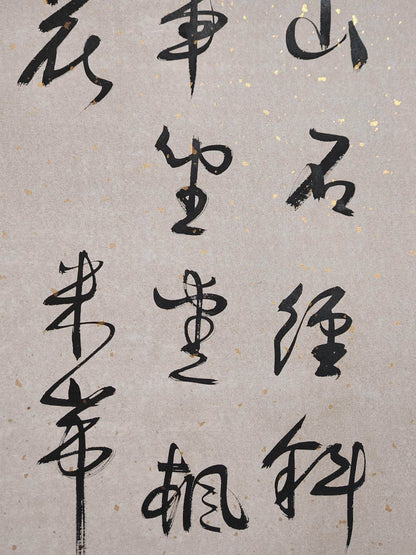 山石徑斜
車坐愛楓
花